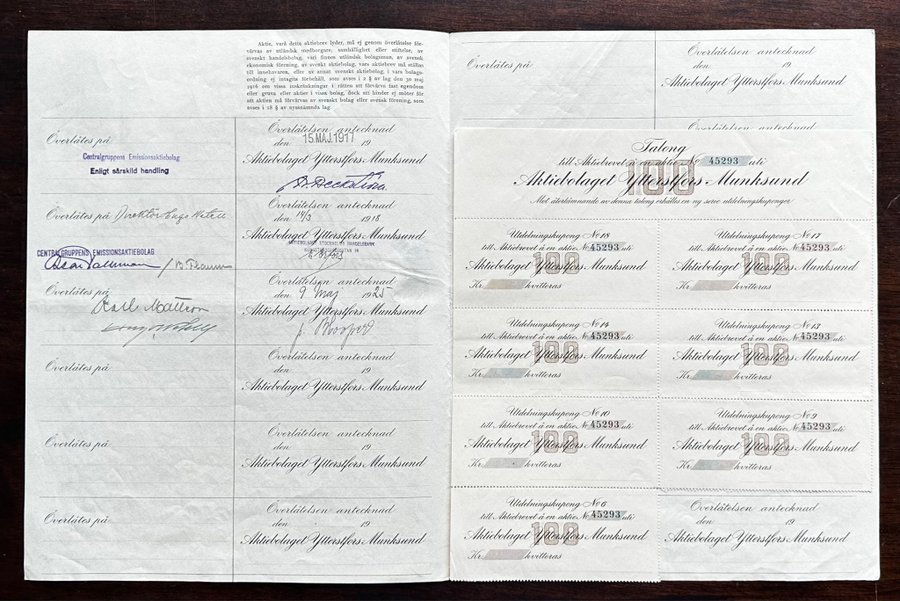 Aktie, varå detta aktiebrev lyder, må ej genom överlåtelse för-
värvas av utländsk medborgare, samhällighet eller stiftelse, av
svenskt handelsbolag, vari finnes utländsk bolagsman, av svensk
ekonomisk förening, av svenskt aktiebolag, vars aktiebrev må ställas
till innehavaren, eller av annat svenskt aktiebolag, i vars bolags-
ordning ej intagits förbehåll, som avses i 2 § av lag den 30 maj
1916 om vissa inskränkningar i rätten att förvärva fast egendom
eller gruva eller aktier i vissa bolag, dock att hinder ej möter för
att aktien må förvärvas av svenskt bolag eller svensk förening, som
avses i 18 § av nyssnämnda lag.
Överlåtes på
Centralgruppens Emissionsaktiebolag
Enligt särskild handling
Överlåtelsen antecknad
den 15.MAJ.1917 19
Aktiebolaget Ytterstfors-Munksund
Överlåtes på Direktör
CENTRALGRUPPENS EMISSIONSAKTIEBOLAG
Överlåtelsen antecknad
den 14/3 1918
Aktiebolaget Ytterstfors-Munksund
AKTIEBOLAGET STOCKHOLMS HANDELSBANK
Överlåtes på
Karl Mattson
Överlåtelsen antecknad
den 9 maj 1925
Aktiebolaget Ytterstfors-Munksund
Överlåtes på
Överlåtelsen antecknad
den 19
Aktiebolaget Ytterstfors-Munksund
Överlåtes på
Överlåtelsen antecknad
den 19
Aktiebolaget Ytterstfors-Munksund
Överlåtes på
Överlåtelsen antecknad
den 19
Aktiebolaget Ytterstfors-Munksund
Överlåtes på
Överlåtelsen antecknad
den 19
Aktiebolaget Ytterstfors-Munksund
Överlåtelsen antecknad
Talong
till Aktiebrevet å en aktie No 45293 uti
100
Aktiebolaget Ytterstfors-Munksund
Mot återlämnande av denna talong erhålles en ny serie utdelningskuponger
Utdelningskupong No 18
till Aktiebrevet å en aktie No 45293 uti
100
Aktiebolaget Ytterstfors-Munksund
Kr. kvitteras
Utdelningskupong No 17
till Aktiebrevet å en aktie No 45293 uti
100
Aktiebolaget Ytterstfors-Munksund
Kr. kvitteras
Utdelningskupong No 14
till Aktiebrevet å en aktie No 45293 uti
100
Aktiebolaget Ytterstfors-Munksund
Kr. kvitteras
Utdelningskupong No 13
till Aktiebrevet å en aktie No 45293 uti
100
Aktiebolaget Ytterstfors-Munksund
Kr. kvitteras
Utdelningskupong No 10
till Aktiebrevet å en aktie No 45293 uti
100
Aktiebolaget Ytterstfors-Munksund
Kr. kvitteras
Utdelningskupong No 9
till Aktiebrevet å en aktie No 45293 uti
100
Aktiebolaget Ytterstfors-Munksund
Kr. kvitteras
Utdelningskupong No 6
till Aktiebrevet å en aktie No 45293 uti
100
Aktiebolaget Ytterstfors-Munksund
Kr. kvitteras
Överlåtelsen antecknad
den 19
Aktiebolaget Ytterstfors-Munksund